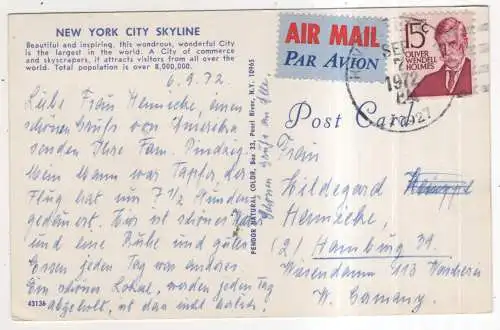 NEW YORK CITY SKYLINE
Beautiful and inspiring, this wondrous, wonderful City
is the largest in the world. A City of commerce
and skyscrapers, it attracts visitors from all over the
world. Total population is over 8,000,000.
6.9.72
Liebe Frau Hennecke, einen
schönen Gruß von Amerika
senden Ihre Fam.
Mein Mann war Tapfer der
Flug hat nur 7 1/2 Stunden
gedauert. Hier ist schönes
und eine Ruhe und gutes
Essen jeden Tag was anderes
Ein schönes Lokal, werden jeden Tag
abgeholt, ist das nicht
43136
PENDOR NATURAL COLOR, Box 33, Pearl River, N.Y. 10965
Schönen Gruß an alle
AIR MAIL
PAR AVION
15c
OLIVER
WENDELL
HOLMES
SEP
Post Card
Frau
Hildegard
Hennecke,
(2) Hamburg 39
Wiesendamm 113
W. Germany